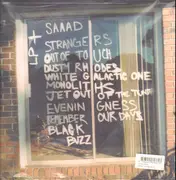 LP+
SAAAD
STRANGERS
OUT OF TOUCH
DUSTY RHODES
WHITE GALACTIC ONE
MONOLITHS
JET OUT OF THE TUNDRA
EVENINGNESS
REMEMBER OUR DAYS
BLACK
BUZZ